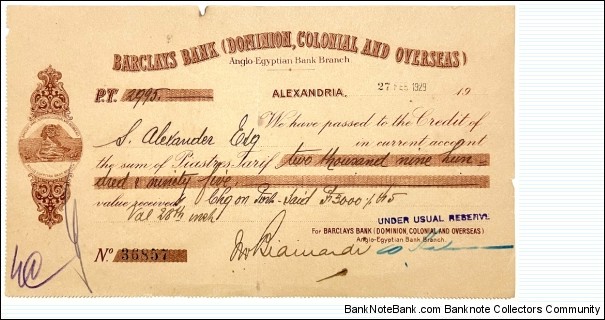 BARCLAYS BANK (DOMINION, COLONIAL AND OVERSEAS)
Anglo-Egyptian Bank Branch
P.T. 2995. ALEXANDRIA, 27 FEB 1929 19
We have passed to the Credit of
S. Alexander Esq in current account
the sum of Piastres Tarif two thousand nine hun
dred & ninety five
value received Chq on Port-Said
Val 28th inst
UNDER USUAL RESERVE
For BARCLAYS BANK (DOMINION, COLONIAL AND OVERSEAS)
Anglo-Egyptian Bank Branch.
No 36857
BankNoteBank.com - BankNote Collectors Community